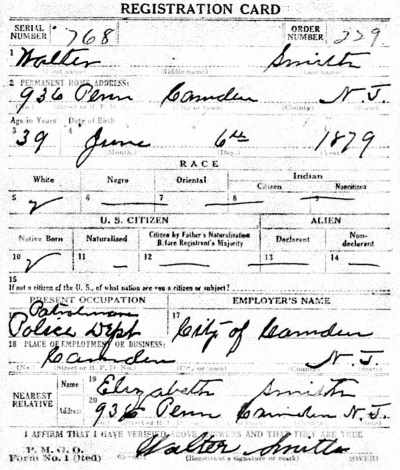 REGISTRATION CARD
SERIAL NUMBER 768 ORDER NUMBER 229
1 Walter Smith
2 PERMANENT HOME ADDRESS:
936 Penn Camden N. J.
Age in Years Date of Birth
3 39 4 June 6th 1879
(Month.) (Day.)
RACE
White Negro Oriental Indian
Citizen Noncitizen
5 ✓ 6 7 8 9
U. S. CITIZEN ALIEN
Native Born Naturalized Citizen by Father's Naturalization Before Registrant's Majority Declarant Non-declarant
10 ✓ 11 12 13 14
15
If not a citizen of the U. S., of what nation are you a citizen or subject?
PRESENT OCCUPATION EMPLOYER'S NAME
Patrolman
Police Dept 17 City of Camden
18 PLACE OF EMPLOYMENT OR BUSINESS:
Camden N. J.
NEAREST RELATIVE Name 19 Elizabeth Smith
Address 20 936 Penn Camden N. J.
I AFFIRM THAT I HAVE VERIFIED ABOVE ANSWERS AND THAT THEY ARE TRUE
P. M. G. O.
Form No. 1 (Red) Walter Smith
(Registrant's signature or mark) (OVER)